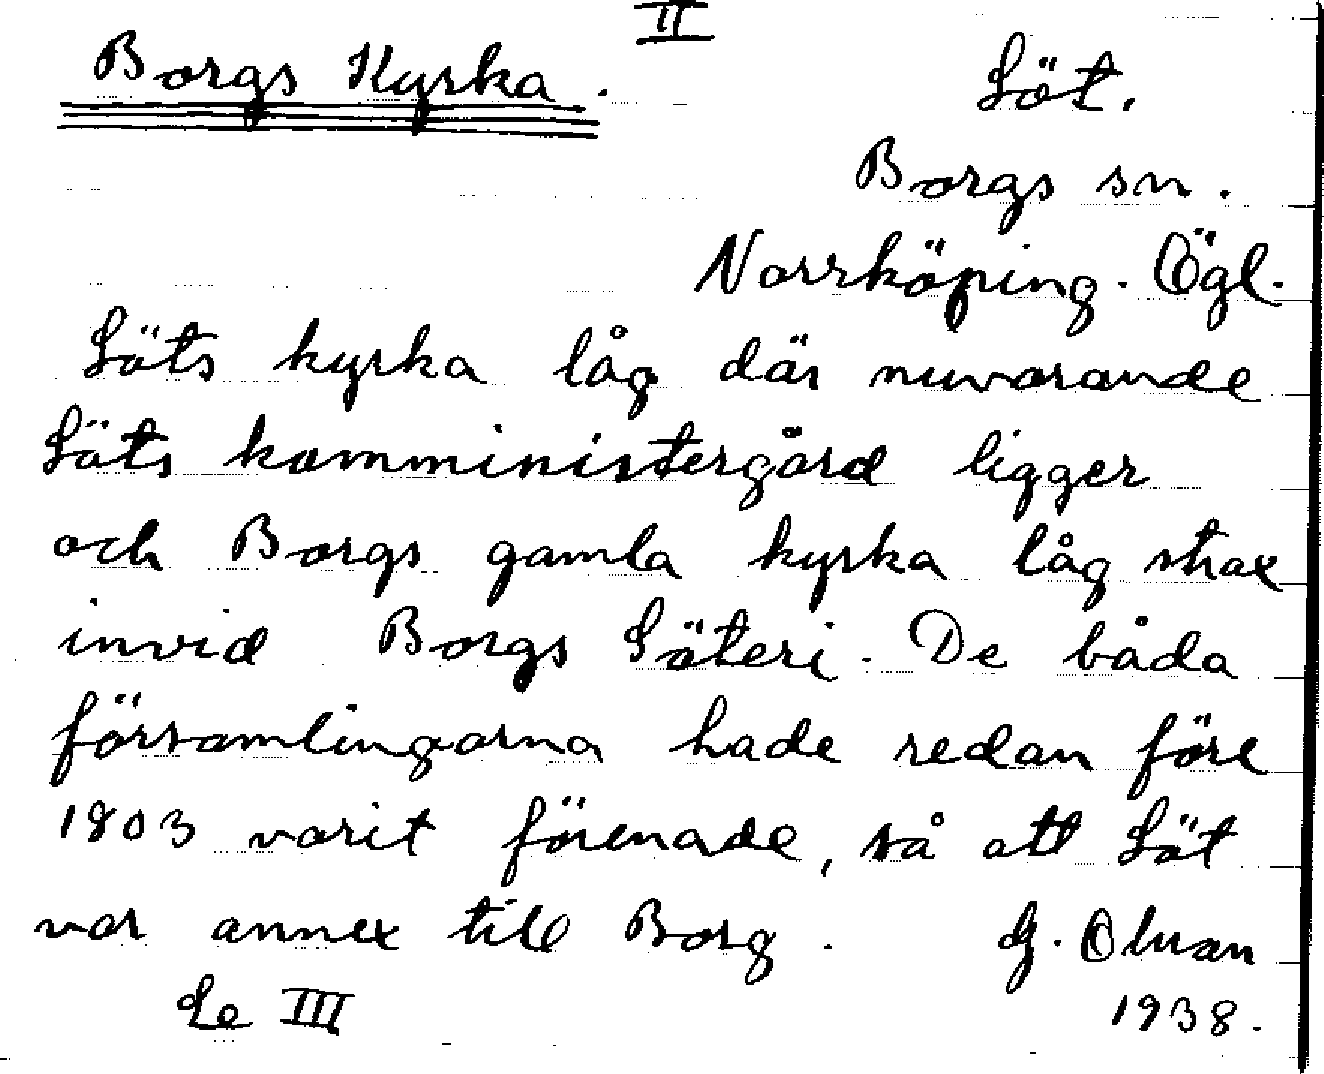 II
Borgs Kyrka.
Löt.
Borgs sn.
Norrköping. Ögl.
Löts kyrka låg där nuvarande
Löts komministergård ligger
och Borgs gamla kyrka låg strax
invid Borgs Säteri. De båda
församlingarna hade redan före
1803 varit förenade, så att Löt
var annex till Borg. G.
Se III
1938.